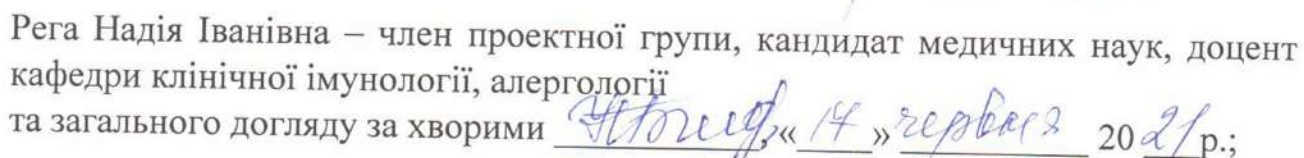 Рега Надія Іванівна – член проектної групи, кандидат медичних наук, доцент
кафедри клінічної імунології, алергології
та загального догляду за хворими , «14» червня 2021 р.;